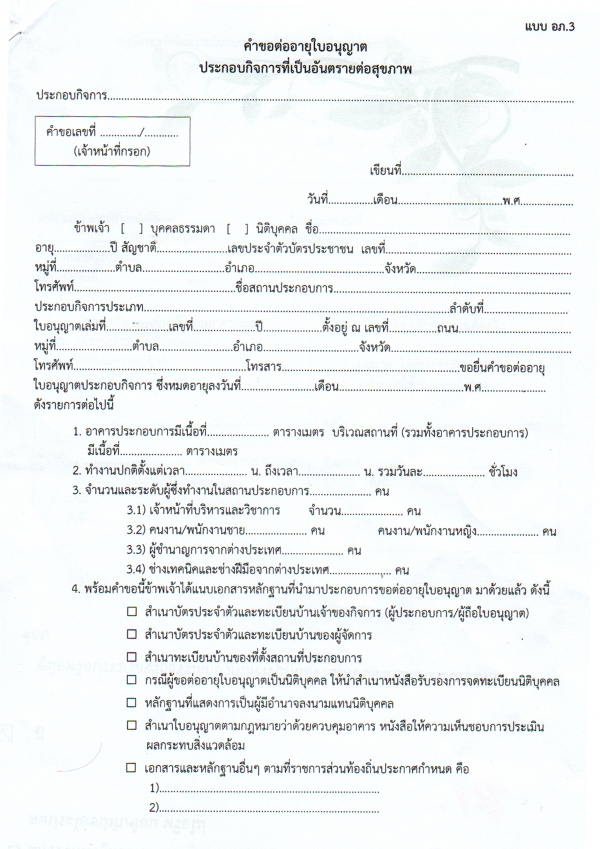 แบบ อภ.3
คำขอต่ออายุใบอนุญาต
ประกอบกิจการที่เป็นอันตรายต่อสุขภาพ
ประกอบกิจการ..........................................................................................
คำขอเลขที่ ............./...........
(เจ้าหน้าที่กรอก)
เขียนที่....................................................
วันที่...............เดือน..................................พ.ศ..................
ข้าพเจ้า [ ] บุคคลธรรมดา [ ] นิติบุคคล ชื่อ..........................................................
อายุ...................ปี สัญชาติ........................เลขประจำตัวบัตรประชาชน เลขที่..........................................................
หมู่ที่....................ตำบล............................อำเภอ...........................................จังหวัด....................................................
โทรศัพท์......................................................ชื่อสถานประกอบการ................................................................................
ประกอบกิจการประเภท......................................................................................................ลำดับที่............................
ใบอนุญาตเล่มที่.....................เลขที่.....................ปี....................ตั้งอยู่ ณ เลขที่................ถนน......................................
หมู่ที่..........................ตำบล.........................อำเภอ................................จังหวัด............................................................
โทรศัพท์..........................................................โทรสาร......................................................................ขอยื่นคำขอต่ออายุ
ใบอนุญาตประกอบกิจการ ซึ่งหมดอายุลงวันที่.........................เดือน..........................................พ.ศ......................
ดังรายการต่อไปนี้
1. อาคารประกอบการมีเนื้อที่..................... ตารางเมตร บริเวณสถานที่ (รวมทั้งอาคารประกอบการ)
มีเนื้อที่..................... ตารางเมตร
2. ทำงานปกติตั้งแต่เวลา..................... น. ถึงเวลา..................... น. รวมวันละ..................... ชั่วโมง
3. จำนวนและระดับผู้ซึ่งทำงานในสถานประกอบการ..................... คน
3.1) เจ้าหน้าที่บริหารและวิชาการ จำนวน..................... คน
3.2) คนงาน/พนักงานชาย..................... คน คนงาน/พนักงานหญิง..................... คน
3.3) ผู้ชำนาญการจากต่างประเทศ..................... คน
3.4) ช่างเทคนิคและช่างฝีมือจากต่างประเทศ..................... คน
4. พร้อมคำขอนี้ข้าพเจ้าได้แนบเอกสารหลักฐานที่นำมาประกอบการขอต่ออายุใบอนุญาต มาด้วยแล้ว ดังนี้
☐ สำเนาบัตรประจำตัวและทะเบียนบ้านเจ้าของกิจการ (ผู้ประกอบการ/ผู้ถือใบอนุญาต)
☐ สำเนาบัตรประจำตัวและทะเบียนบ้านของผู้จัดการ
☐ สำเนาทะเบียนบ้านของที่ตั้งสถานที่ประกอบการ
☐ กรณีผู้ขอต่ออายุใบอนุญาตเป็นนิติบุคคล ให้นำสำเนาหนังสือรับรองการจดทะเบียนนิติบุคคล
☐ หลักฐานที่แสดงการเป็นผู้มีอำนาจลงนามแทนนิติบุคคล
☐ สำเนาใบอนุญาตตามกฎหมายว่าด้วยควบคุมอาคาร หนังสือให้ความเห็นชอบการประเมิน
ผลกระทบสิ่งแวดล้อม
☐ เอกสารและหลักฐานอื่นๆ ตามที่ราชการส่วนท้องถิ่นประกาศกำหนด คือ
1)..........................................................................
2)..........................................................................